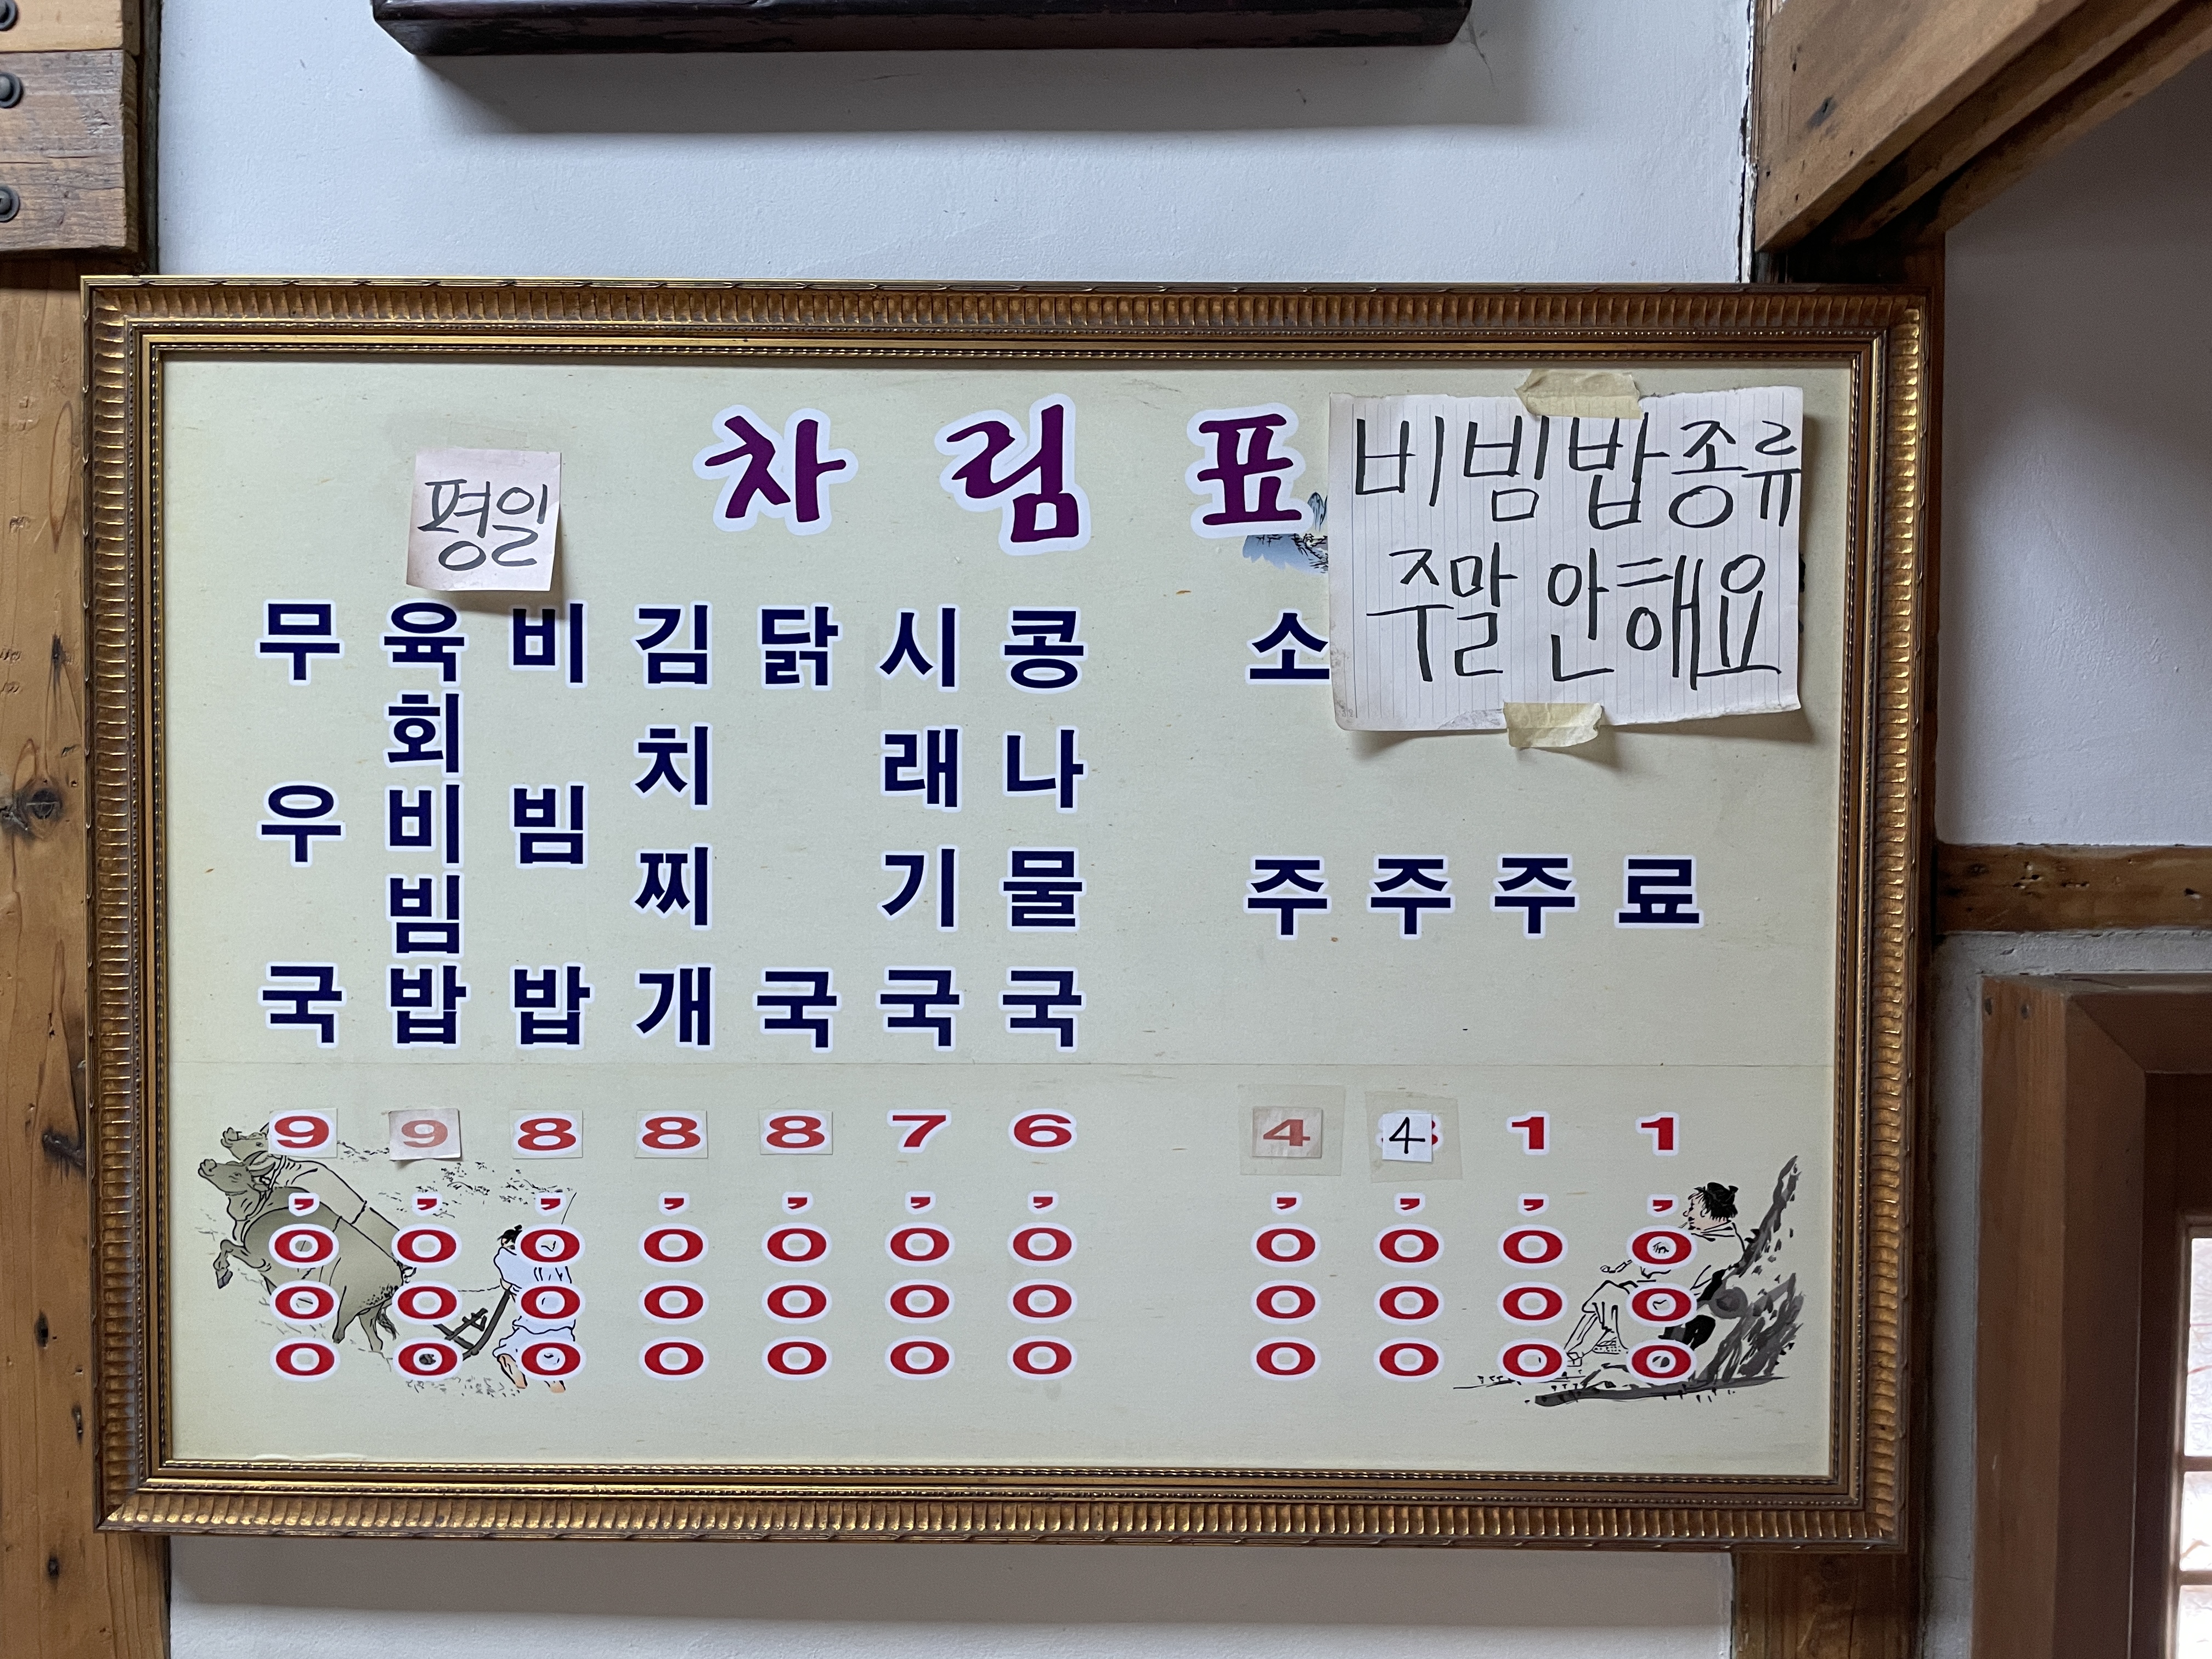 차림표
평일
비빔밥종류
주말 안해요
무우국
9,000
육회비빔밥
9,000
비빔밥
8,000
김치찌개
8,000
닭국
8,000
시래기국
7,000
콩나물국
6,000
소주
4,000
주
4,000
주
1,000
료
1,000